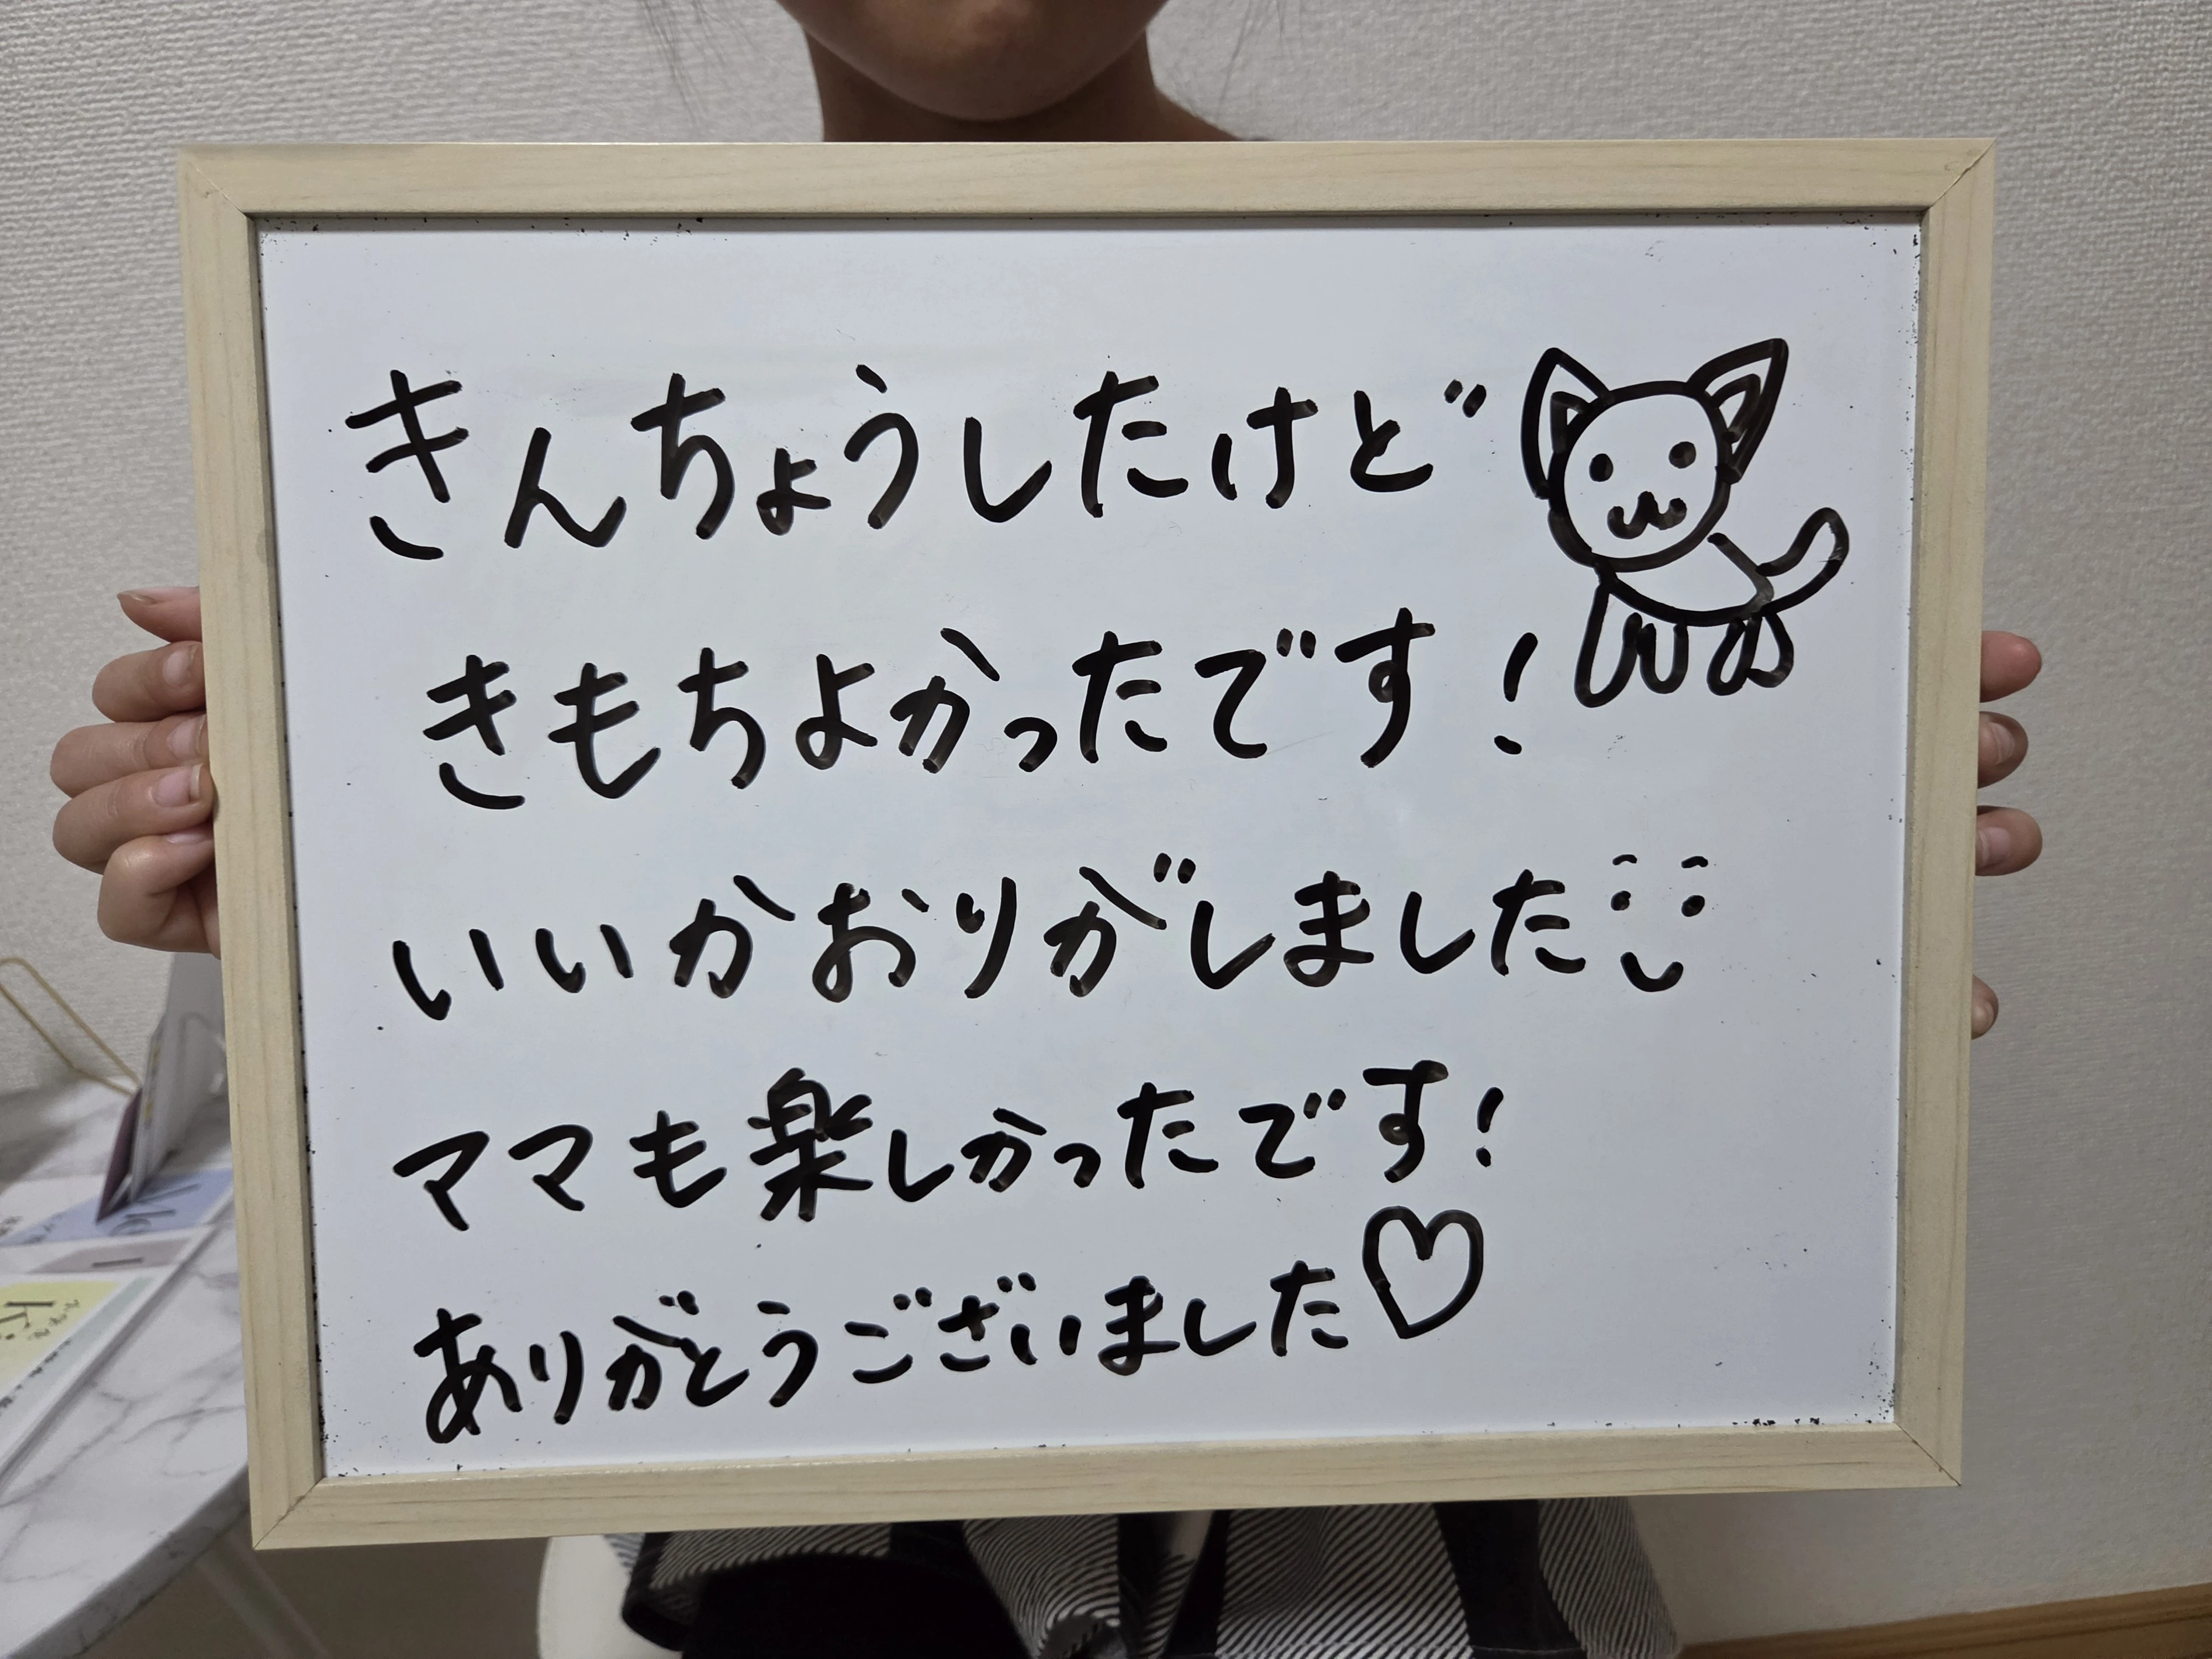 きんちょうしたけど
きもちよかったです!
いいかおりがしました
ママも楽しかったです!
ありがとうございました♡